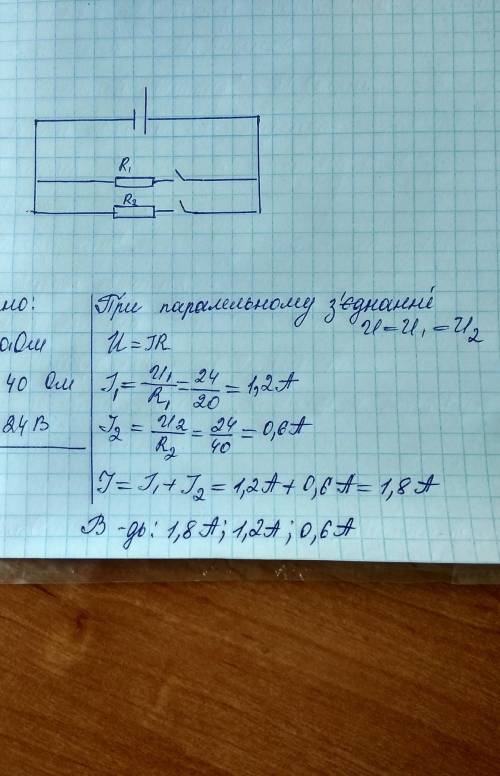 R₁
R₂
но:
0 Ом
40 Ом
24 В
При паралельному з'єднанні
U = U₁ = U₂
U = IR
I₁ = U₁/R₁ = 24/20 = 1,2 А
I₂ = U₂/R₂ = 24/40 = 0,6 А
I = I₁ + I₂ = 1,2 А + 0,6 А = 1,8 А
В-дь: 1,8 А; 1,2 А; 0,6 А